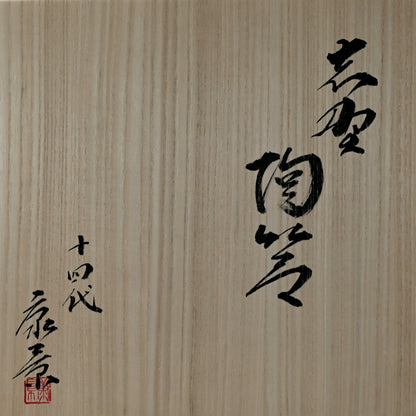 志野
陶筥
十四代
康景